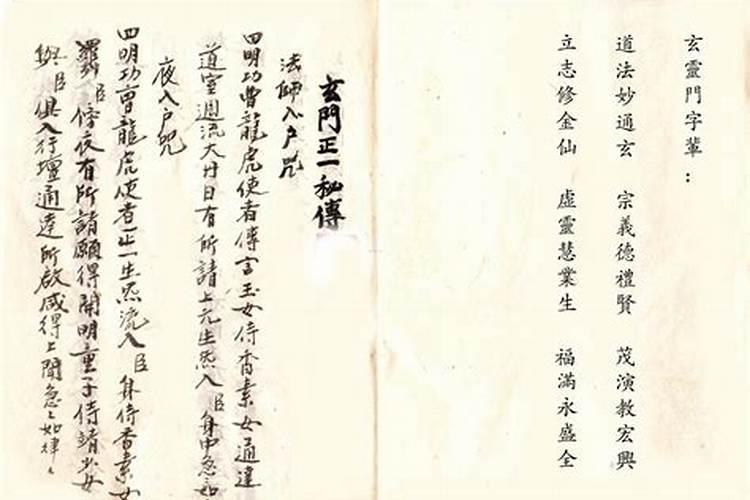 玄靈門字輩：
道法妙通玄 宗義德禮賢 茂演教宏興
立志修金仙 虛靈慧業生 福滿永盛全
玄門正一秘傳
法師入户咒
四明功曹龍虎使者傳言玉女侍香素女通達
道室週流大廿日有所請上元生炁入臣身中急如
夜入户咒
四明功曹龍虎使者正一生炁流入臣身侍香素女
臣脩夜有所請願得開明童子侍靖少女
與臣俱入行壇通達所啟咸得上聞急々如律々